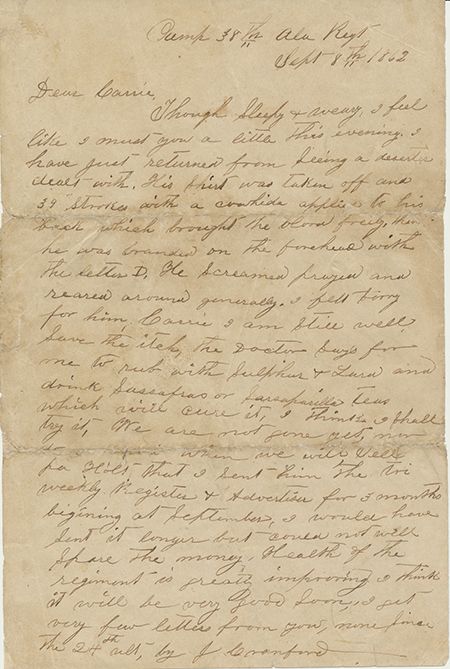 Camp 38th Ala Regt
Sept 8th 1862
Dear Carrie,
Though Sleepy & weary, I feel
like I must you a little this evening. I
have just returned from Seeing a deserter
dealt with. His Shirt was taken off and
39 Strokes with a cowhide applied to his
back which brought the blood freely, then
he was branded on the forehead with
the letter D, He Screamed prayed and
reared around generally. I felt Sorry
for him. Carrie I am Still well,
Save the itch, the Doctor Says for
me to rub with Sulphur & Lard and
drink Sassafras or Sarsaparilla teas
which will cure it, I think I Shall
try it, We are not gone yet, nor
when we will Tell
Pa Holt that I sent him the tri
weekly Register & Advertiser for 3 months
begining at September, I would have
Sent it longer but could not well
Spare the money. Health of the
regiment is greatly improving I think
it will be very good Soon, I get
very few letters from you, none Since
the 24th ult, by J Cranford